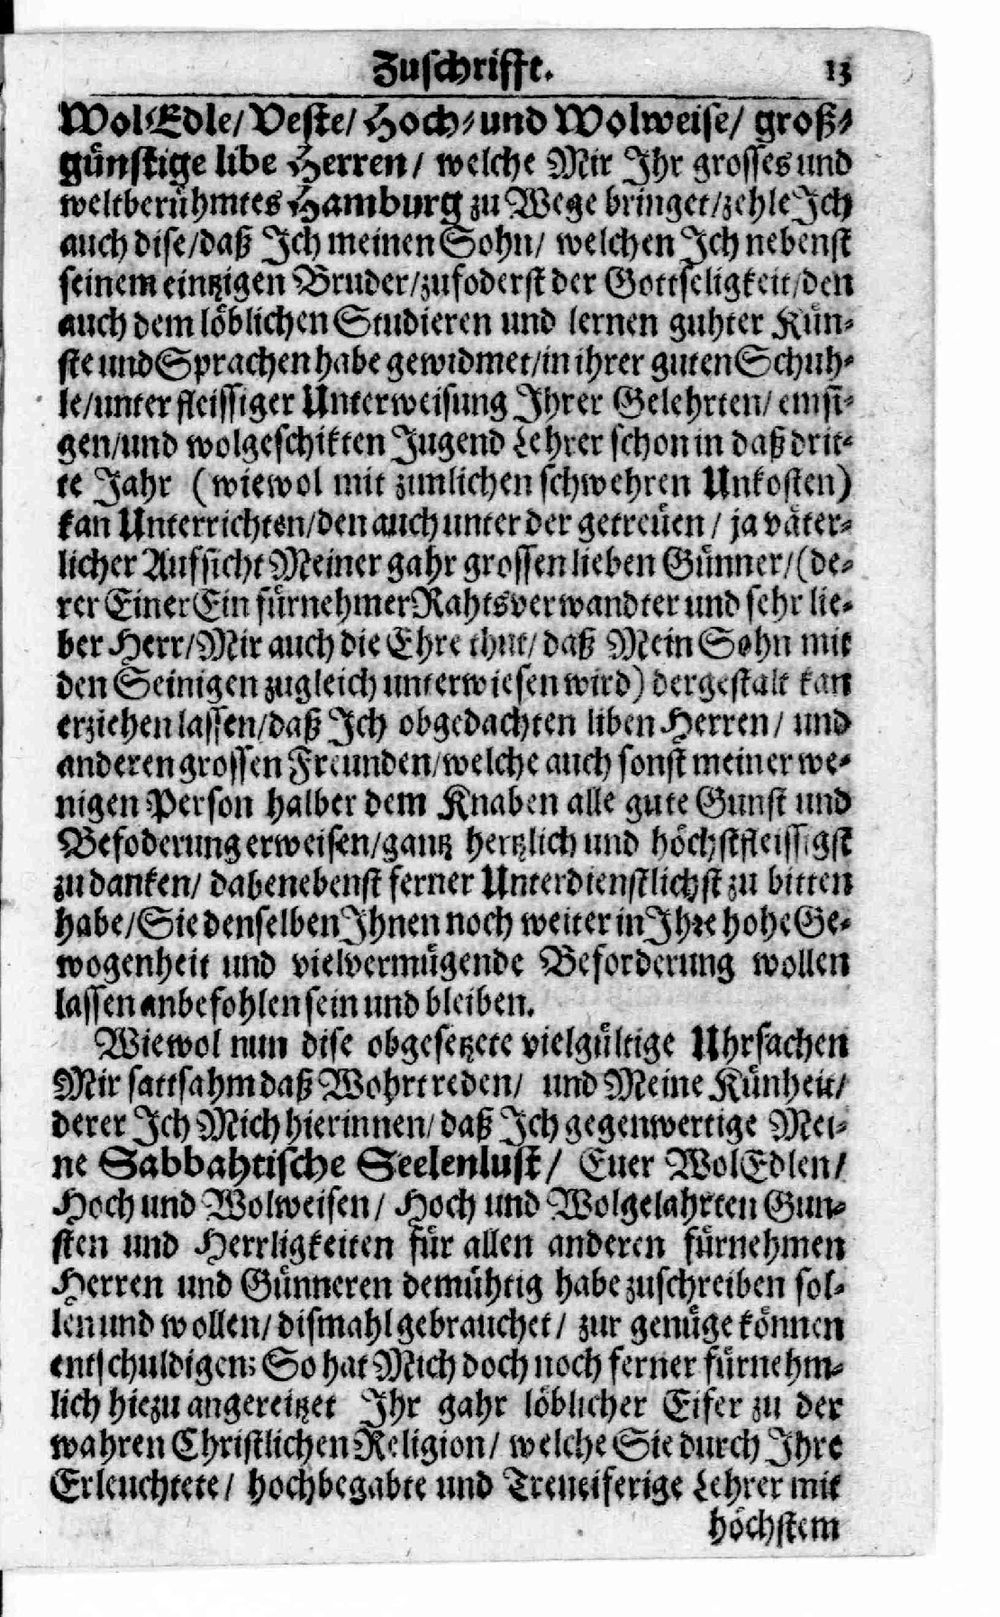 Zuschrifft. 13
Wol-Edle/ Veste/ Hoch- und Wolweise/ groß-
günstige libe Herren/ welche Mir Ihr grosses und
weltberühmtes Hamburg zu Wege bringet/ zehle Ich
auch dise/ daß Ich meinen Sohn/ welchen Ich nebenst
seinem eintzigen Bruder/ zufoderst der Gottseligkeit/ den
auch dem löblichen Studieren und lernen guhter Kün-
ste und Sprachen habe gewidmet/ in ihrer guten Schuh-
le/ unter fleissiger Unterweisung Ihrer Gelehrten/ emsi-
gen/ und wolgeschikten Jugend Lehrer schon in daß drit-
te Jahr (wiewol mit zimlichen schwehren Unkosten)
kan Unterrichten/ den auch unter der getreüen/ ja väter-
licher Aufsicht Meiner gahr grossen lieben Günner/ (de-
rer Einer Ein fürnehmer Rahtsverwandter und sehr lie-
ber Herr/ Mir auch die Ehre thut/ daß Mein Sohn mit
den Seinigen zugleich unterwiesen wird) dergestalt kan
erziehen lassen/ daß Ich obgedachten liben Herren/ und
anderen grossen Freunden/ welche auch sonst meiner we-
nigen Person halber dem Knaben alle gute Gunst und
Befoderung erweisen/ gantz hertzlich und höchstfleissigst
zu danken/ dabenebenst ferner Unterdienstlichst zu bitten
habe/ Sie denselben Ihnen noch weiter in Ihre hohe Ge-
wogenheit und vielvermügende Beforderung wollen
lassen anbefohlen sein und bleiben.
Wiewol nun dise obgesetzete vielgültige Uhrsachen
Mir sattsahm daß Wohrt reden/ und Meine Künheit/
derer Ich Mich hierinnen/ daß Ich gegenwertige Mei-
ne Sabbahtische Seelenlust/ Euer WolEdlen/
Hoch und Wolweisen/ Hoch und Wolgelahrten Gun-
sten und Herrligkeiten für allen anderen fürnehmen
Herren und Günneren demühtig habe zuschreiben sol-
len und wollen/ dismahl gebrauchet/ zur genüge können
entschuldigen; So hat Mich doch noch ferner fürnehm-
lich hiezu angereitzet Ihr gahr löblicher Eifer zu der
wahren Christlichen Religion/ welche Sie durch Ihre
Erleuchtete/ hochbegabte und Treueiferige Lehrer mit
höchstem